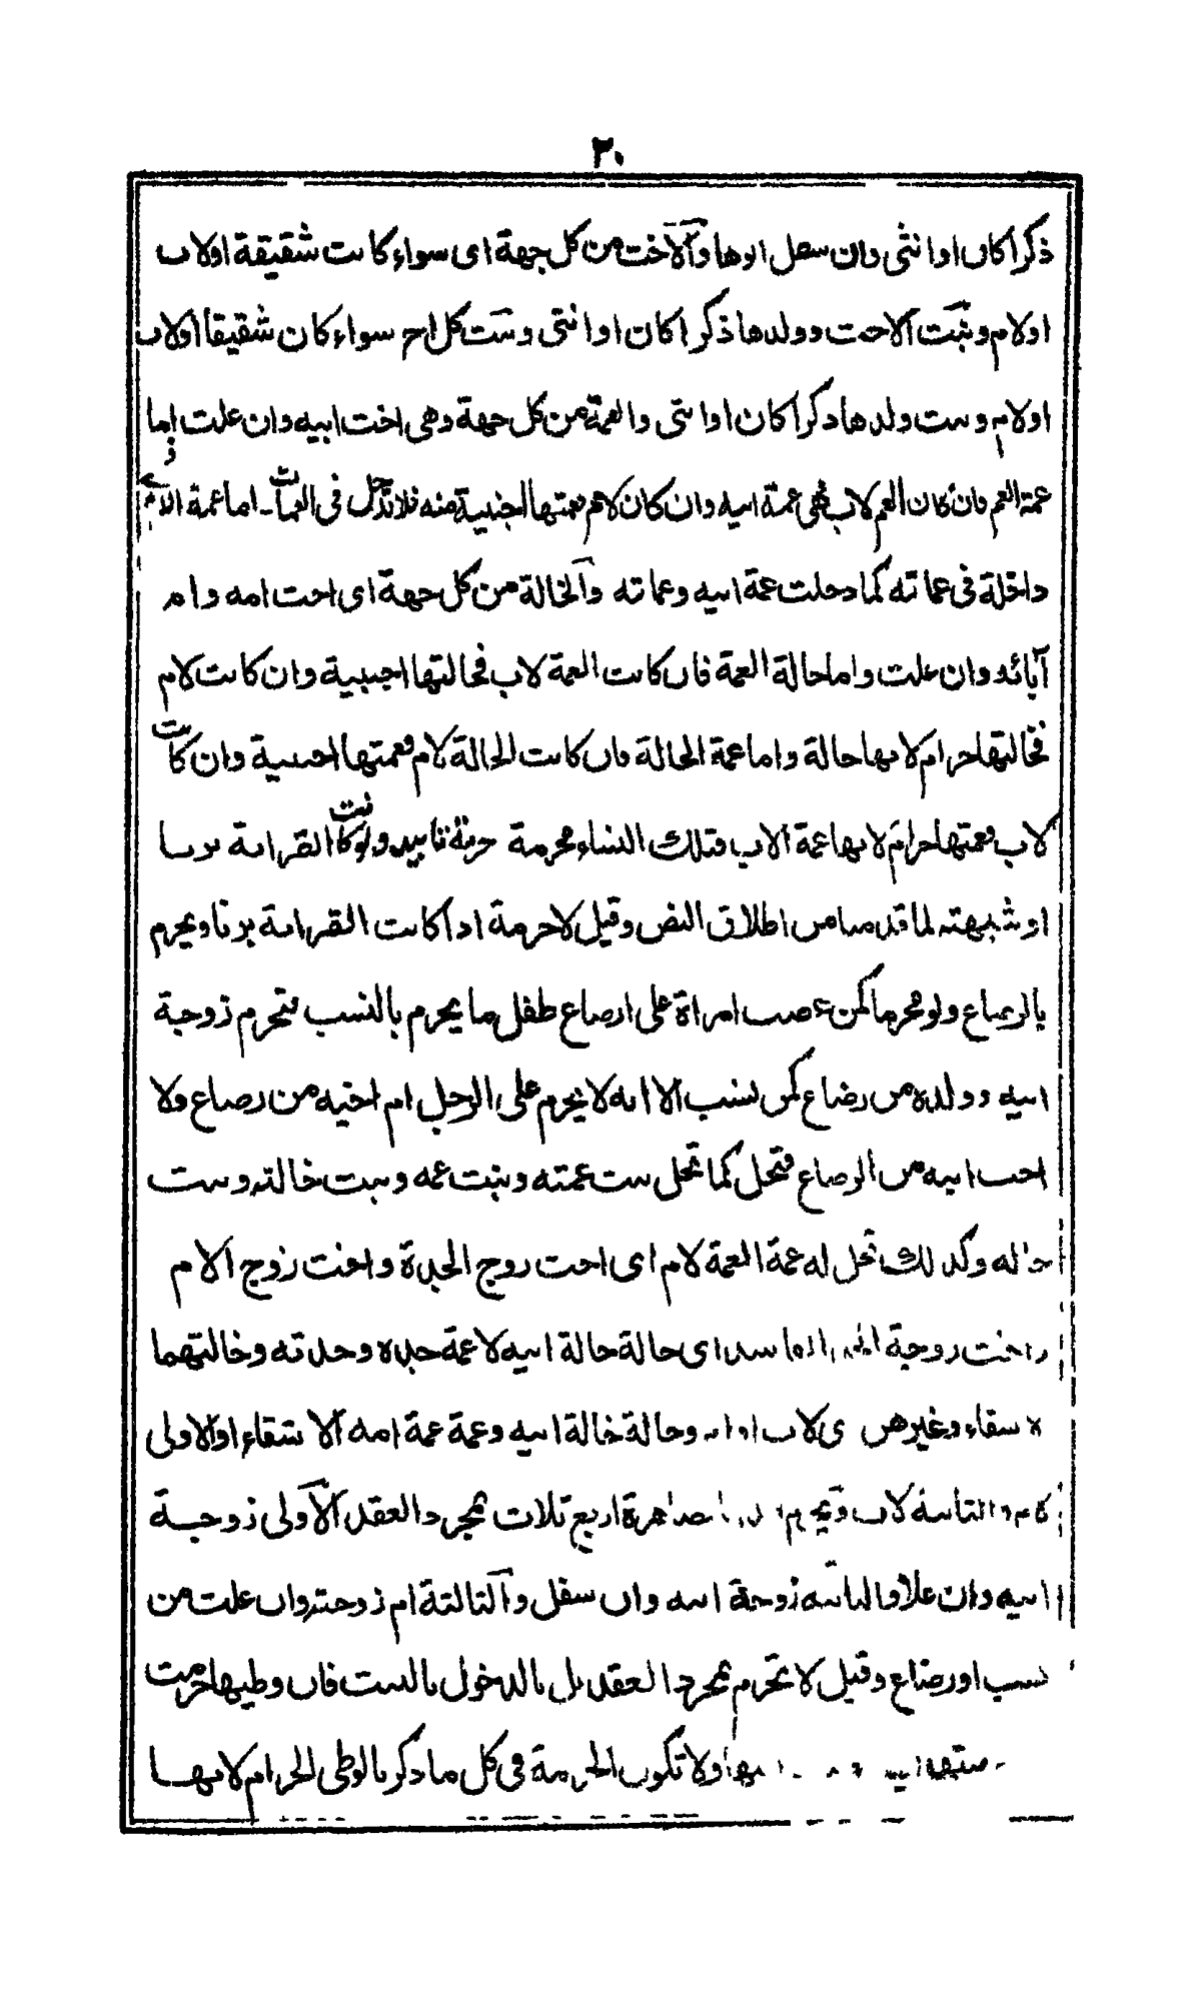 ٣٠
ذكرا كان او انثى وان سفل ابوها والاخت من كل جهة اى سواء كانت شقيقة اولاب
اولام وبنت الاخت وولدها ذكرا كان او انثى وبنت كل اخ سواء كان شقيقا اولاب
اولام وبنت ولدها ذكرا كان او انثى والعمة من كل جهة وهى اخت ابيه وان علت اما
عمة العم فان كان العم لاب فهى عمة ابيه وان كان لام فعمتها اجنبية منه فلا تدخل فى العمات اما عمة الام
داخلة فى عماته كما دخلت عمة ابيه وعماته والخالة من كل جهة اى اخت امه وام
آبائه وان علت واما خالة العمة فان كانت العمة لاب فخالتها اجنبية وان كانت لام
فخالتها حرام لانها خالة واما عمة الخالة فان كانت الخالة لام فعمتها اجنبية وان كانت
لاب فعمتها حرام لانها عمة الاب فتلك النساء محرمة حرمة تابيد ولو كانت القرابة بزنا
او شبهته لما قدمنا من اطلاق النص وقيل لا حرمة اذا كانت القرابة بزنا ويحرم
بالرضاع ولو محرما كمن غصب امراة على ارضاع طفل ما يحرم بالنسب فتحرم زوجة
ابيه وولده من رضاع كمن نسب الا انه لا يحرم على الرجل ام اخيه من رضاع ولا
اخت ابيه من الرضاع فتحل كما تحل بنت عمته وبنت عمه وبنت خالته وبنت
خاله وكذلك تحل له عمة العمة لام اى اخت زوج الجدة واخت زوج الام
واخت زوجة اى خالة خالة ابيه لا عمة جده وجدته وخالتهما
لاشقاء وغيرهن لاب وخالة خالة ابيه وعمة عمة امه الا شقاء او الاولى
لام والثانية لاب ويحرم اربع ثلاث بمجرد العقد الاولى زوجة
ابيه وان علا والثانية زوجة ابنه وان سفل والثالثة ام زوجته وان علت من
نسب او رضاع وقيل لا تحرم بمجرد العقد بل بالدخول بالبنت فان وطيها حرمت
ولا تكون الحرمة فى كل ما ذكر بالوطى الحرام لانها